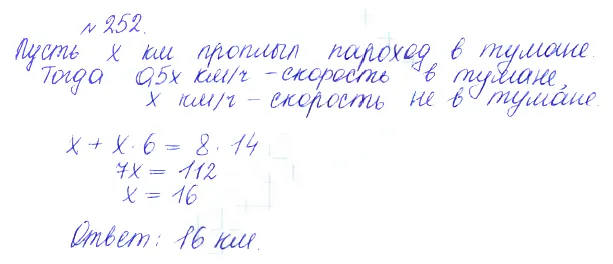 №252.
Пусть x км проплыл пароход в тумане.
Тогда 0,5x км/ч - скорость в тумане,
x км/ч - скорость не в тумане.
x + x · 6 = 8 · 14
7x = 112
x = 16
Ответ: 16 км.